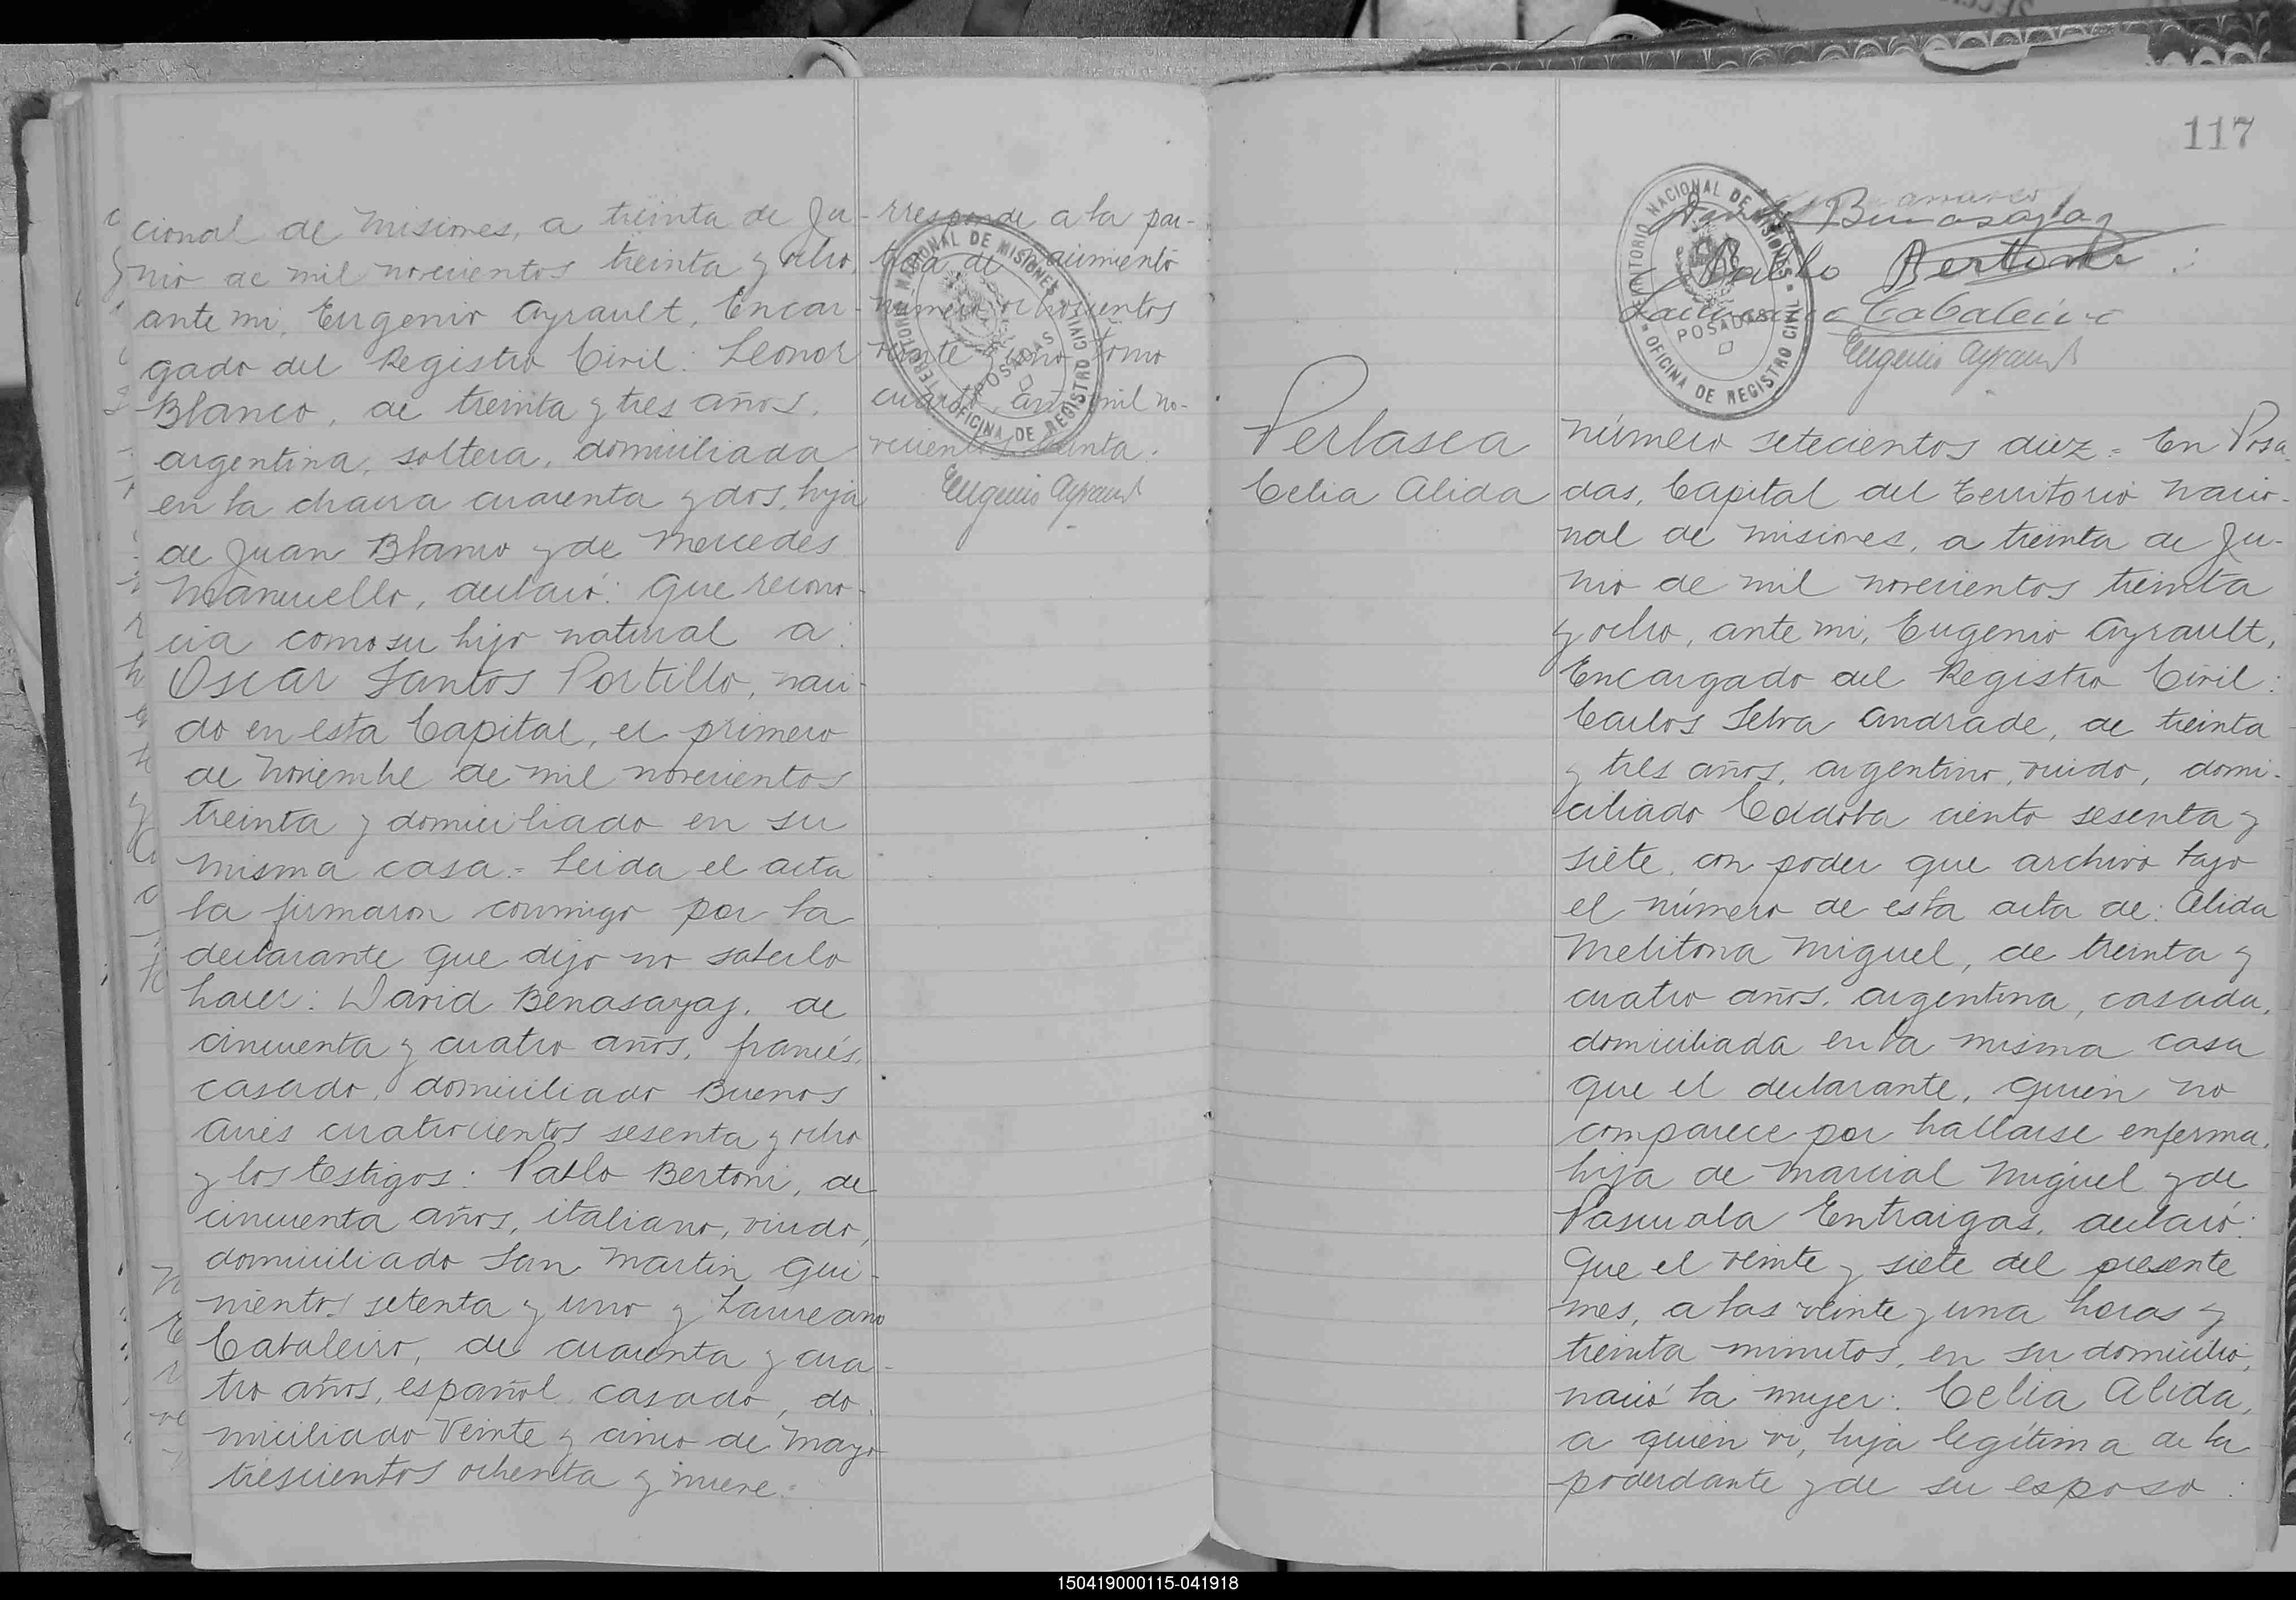 cional de Misiones, a treinta de Ju-
nio de mil novecientos treinta y ocho,
ante mi, Eugenio Ayrault, Encar-
gado del Registro Civil: Leonor
Blanco, de treinta y tres años,
argentina, soltera, domiciliada
en la chacra cuarenta y dos, hija
de Juan Blanco y de Mercedes
Mancuello, declaró: Que recono-
cia como su hijo natural a:
Oscar Santos Portillo, naci-
do en esta Capital, el primero
de Noviembre de mil novecientos
treinta y domiciliado en su
misma casa.= Leida el acta
la firmaron conmigo por la
declarante que dijo no saberlo
hacer: David Benasayag, de
cincuenta y cuatro años, francés,
casado, domiciliado Buenos
Aires cuatrocientos sesenta y ocho
y los testigos: Pablo Bertoni, de
cincuenta años, italiano, viudo,
domiciliado San Martin qui-
nientos setenta y uno y Laureano
Cabaleiro, de cuarenta y cua-
tro años, español, casado, do-
miciliado Veinte y cinco de Mayo
trescientos ochenta y nueve.=
rresponde a la par-
tida de nacimiento
número ochocientos
veinte y uno tomo
cuarto, año mil no-
vecientos treinta.
Eugenio Ayrault
TERRITORIO NACIONAL DE MISIONES
POSADAS
OFICINA DE REGISTRO CIVIL
117
David Benasayag
Pablo Bertoni
Laureano Cabaleiro
Eugenio Ayrault
TERRITORIO NACIONAL DE MISIONES
POSADAS
OFICINA DE REGISTRO CIVIL
Perlasca
Celia Alida
número setecientos diez = En Posa-
das, Capital del Territorio Nacio-
nal de Misiones, a treinta de Ju-
nio de mil novecientos treinta
y ocho, ante mi, Eugenio Ayrault,
Encargado del Registro Civil:
Carlos Selva Andrade, de treinta
y tres años, argentino, viudo, domi-
ciliado Córdoba ciento sesenta y
siete, con poder que archivo bajo
el número de esta acta de: Alida
Melitona Miguel, de treinta y
cuatro años, argentina, casada,
domiciliada en la misma casa
que el declarante, quien no
comparece por hallarse enferma,
hija de Marcial Miguel y de
Pascuala Entraigas, declaró:
Que el veinte y siete del presente
mes, a las veinte y una horas y
treinta minutos, en su domicilio,
nació la mujer: Celia Alida,
a quien vi, hija legítima de la
poderdante y de su esposo:
150419000115-041918